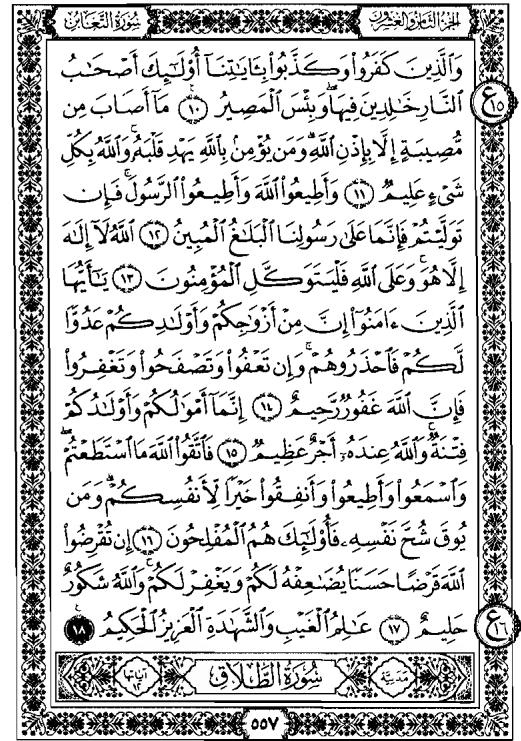 الجزء الثامن والعشرون
سورة التغابن
وَٱلَّذِينَ كَفَرُواْ وَكَذَّبُواْ بِـَٔايَٰتِنَآ أُوْلَٰٓئِكَ أَصْحَٰبُ
ٱلنَّارِ خَٰلِدِينَ فِيهَاۖ وَبِئْسَ ٱلْمَصِيرُ ١٠ مَآ أَصَابَ مِن
مُّصِيبَةٍ إِلَّا بِإِذْنِ ٱللَّهِۗ وَمَن يُؤْمِنۢ بِٱللَّهِ يَهْدِ قَلْبَهُۥۚ وَٱللَّهُ بِكُلِّ
شَىْءٍ عَلِيمٌ ١١ وَأَطِيعُواْ ٱللَّهَ وَأَطِيعُواْ ٱلرَّسُولَۚ فَإِن
تَوَلَّيْتُمْ فَإِنَّمَا عَلَىٰ رَسُولِنَا ٱلْبَلَٰغُ ٱلْمُبِينُ ١٢ ٱللَّهُ لَآ إِلَٰهَ
إِلَّا هُوَۚ وَعَلَى ٱللَّهِ فَلْيَتَوَكَّلِ ٱلْمُؤْمِنُونَ ١٣ يَٰٓأَيُّهَا
ٱلَّذِينَ ءَامَنُوٓاْ إِنَّ مِنْ أَزْوَٰجِكُمْ وَأَوْلَٰدِكُمْ عَدُوًّا
لَّكُمْ فَٱحْذَرُوهُمْۚ وَإِن تَعْفُواْ وَتَصْفَحُواْ وَتَغْفِرُواْ
فَإِنَّ ٱللَّهَ غَفُورٌ رَّحِيمٌ ١٤ إِنَّمَآ أَمْوَٰلُكُمْ وَأَوْلَٰدُكُمْ
فِتْنَةٌۚ وَٱللَّهُ عِندَهُۥٓ أَجْرٌ عَظِيمٌ ١٥ فَٱتَّقُواْ ٱللَّهَ مَا ٱسْتَطَعْتُمْ
وَٱسْمَعُواْ وَأَطِيعُواْ وَأَنفِقُواْ خَيْرًا لِّأَنفُسِكُمْۗ وَمَن
يُوقَ شُحَّ نَفْسِهِۦ فَأُوْلَٰٓئِكَ هُمُ ٱلْمُفْلِحُونَ ١٦ إِن تُقْرِضُواْ
ٱللَّهَ قَرْضًا حَسَنًا يُضَٰعِفْهُ لَكُمْ وَيَغْفِرْ لَكُمْۚ وَٱللَّهُ شَكُورٌ
حَلِيمٌ ١٧ عَٰلِمُ ٱلْغَيْبِ وَٱلشَّهَٰدَةِ ٱلْعَزِيزُ ٱلْحَكِيمُ ١٨
ع ١٥
ع ١٦
مدنية
سُورَةُ الطَّلَاقِ
آياتها ١٢
٥٥٧